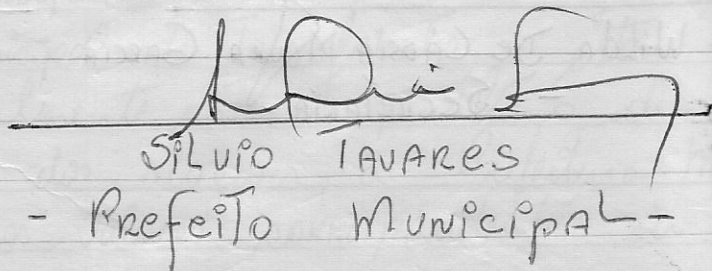 Silvio Tavares
- Prefeito Municipal -